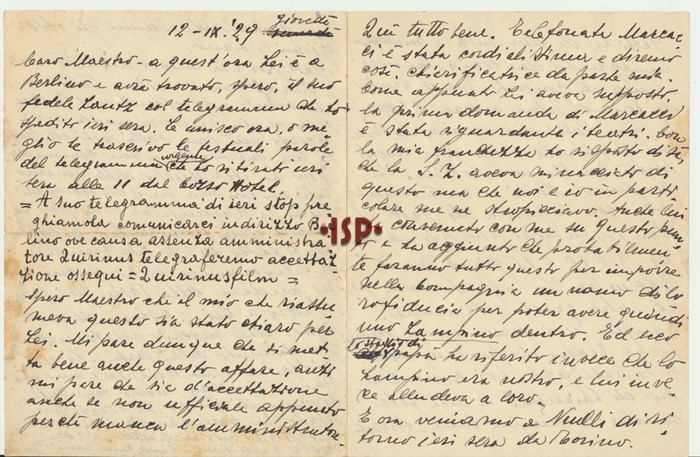 12-IX.'29 giovedì
Caro Maestro - a quest'ora Lei è a
Berlino e avrà trovato, spero, il suo
fedele Lantz col telegramma che ho
spedito ieri sera. Le unisco ora, o me
glio le trascrivo le testuali parole
del telegramma urgente che ho ritirato ieri
sera alle 11 dal Corso Hotel.
= A suo telegramma di ieri stop pre
ghiamola comunicarci indirizzo Ber
lino ove causa assenza amministra
tore Quirinus telegraferemo accettaz
zione ossequi = Quirinusfilm =
Spero Maestro che il mio che riassu
meva questo sia stato chiaro per
Lei. Mi pare dunque che si met
ta bene anche questo affare, anzi
mi pare che sia d'accettazione
anche se non ufficiale appunto
perchè manca l'amministratore.
Qui tutto bene. Telefonata Marcac
ci è stata cordialissima e diremo
così chiarificatrice da parte mia.
Come appunto Lei aveva supposto,
la prima domanda di Marcacci
è stata riguardante i teatri. Con
la mia franchezza ho risposto di sì,
che la S.Z. aveva minacciato di
questo ma che noi e io in parti
colare me ne stropicciavo. Anche lui
ha convenuto con me su questo pun
to e ha aggiunto che probabilmen
te faranno tutto questo per imporre
nella Compagnia un uomo di lo
ro fiducia per poter avere quindi
uno zampino dentro. Ed ecco
lo sbaglio di
papà ha riferito invece che lo
zampino era nostro, e lui inve
ce alludeva a loro.
E ora veniamo a Nulli di ri
torno ieri sera da Torino.
·ISP·